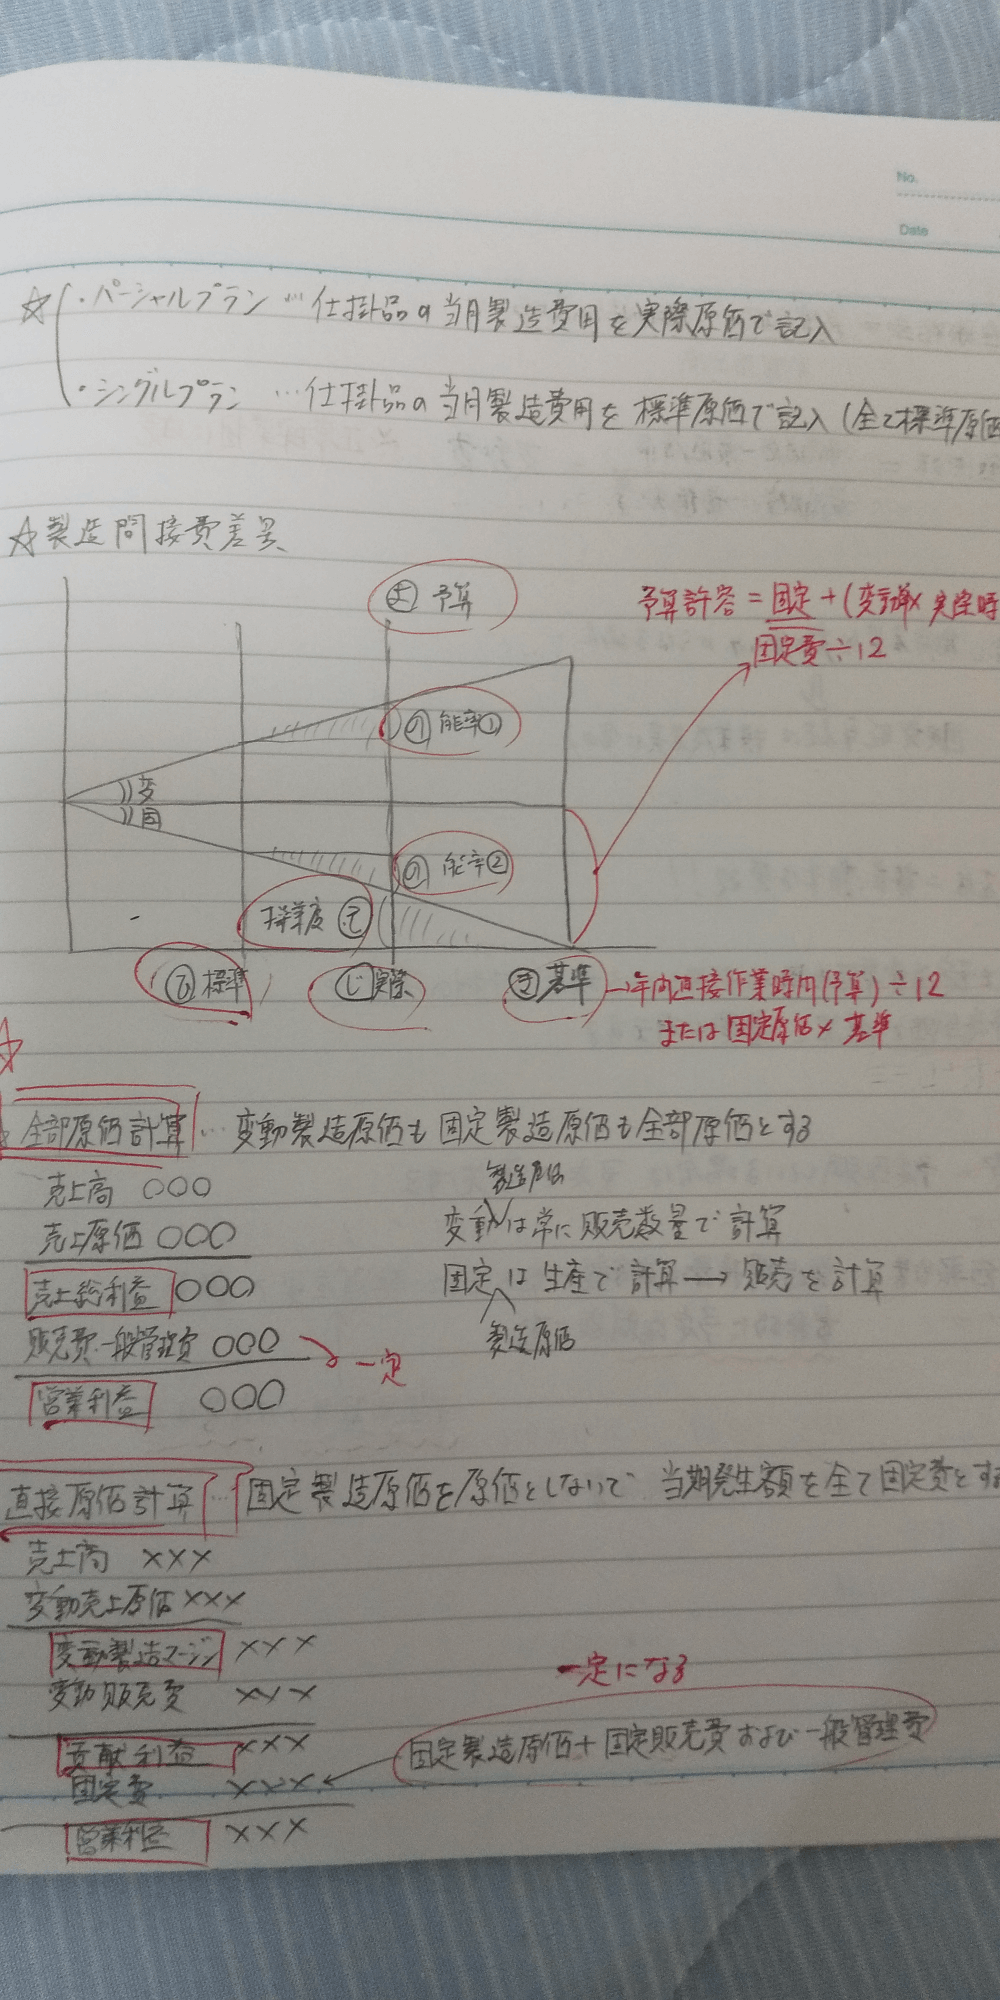 No.
Date
☆ ・パーシャルプラン … 仕掛品の当月製造費用を実際原価で記入
・シングルプラン … 仕掛品の当月製造費用を標準原価で記入 (全て標準原価
☆製造間接費差異
予算
予算許容 = 固定 + (変動率× 実際時
固定費÷12
の 能率①
変
固
の 能率②
操業度
標準
じ 実際
基準 → 年間直接作業時間(予算) ÷12
または 固定原価 × 基準
☆
全部原価計算 … 変動製造原価も固定製造原価も全部原価とする
売上高 ○○○
製造原価
売上原価 ○○○
変動は常に販売数量で計算
売上総利益 ○○○
固定は生産で計算 → 販売を計算
販売費・一般管理費 ○○○ → 一定
製造原価
営業利益 ○○○
直接原価計算 … 固定製造原価を原価としないで 当期発生額を全て固定費とする
売上高 ×××
変動売上原価 ×××
変動製造マージン ×××
一定になる
変動販売費 ×××
貢献利益 ×××
固定製造原価+固定販売費および一般管理費
固定費 ×××
営業利益 ×××